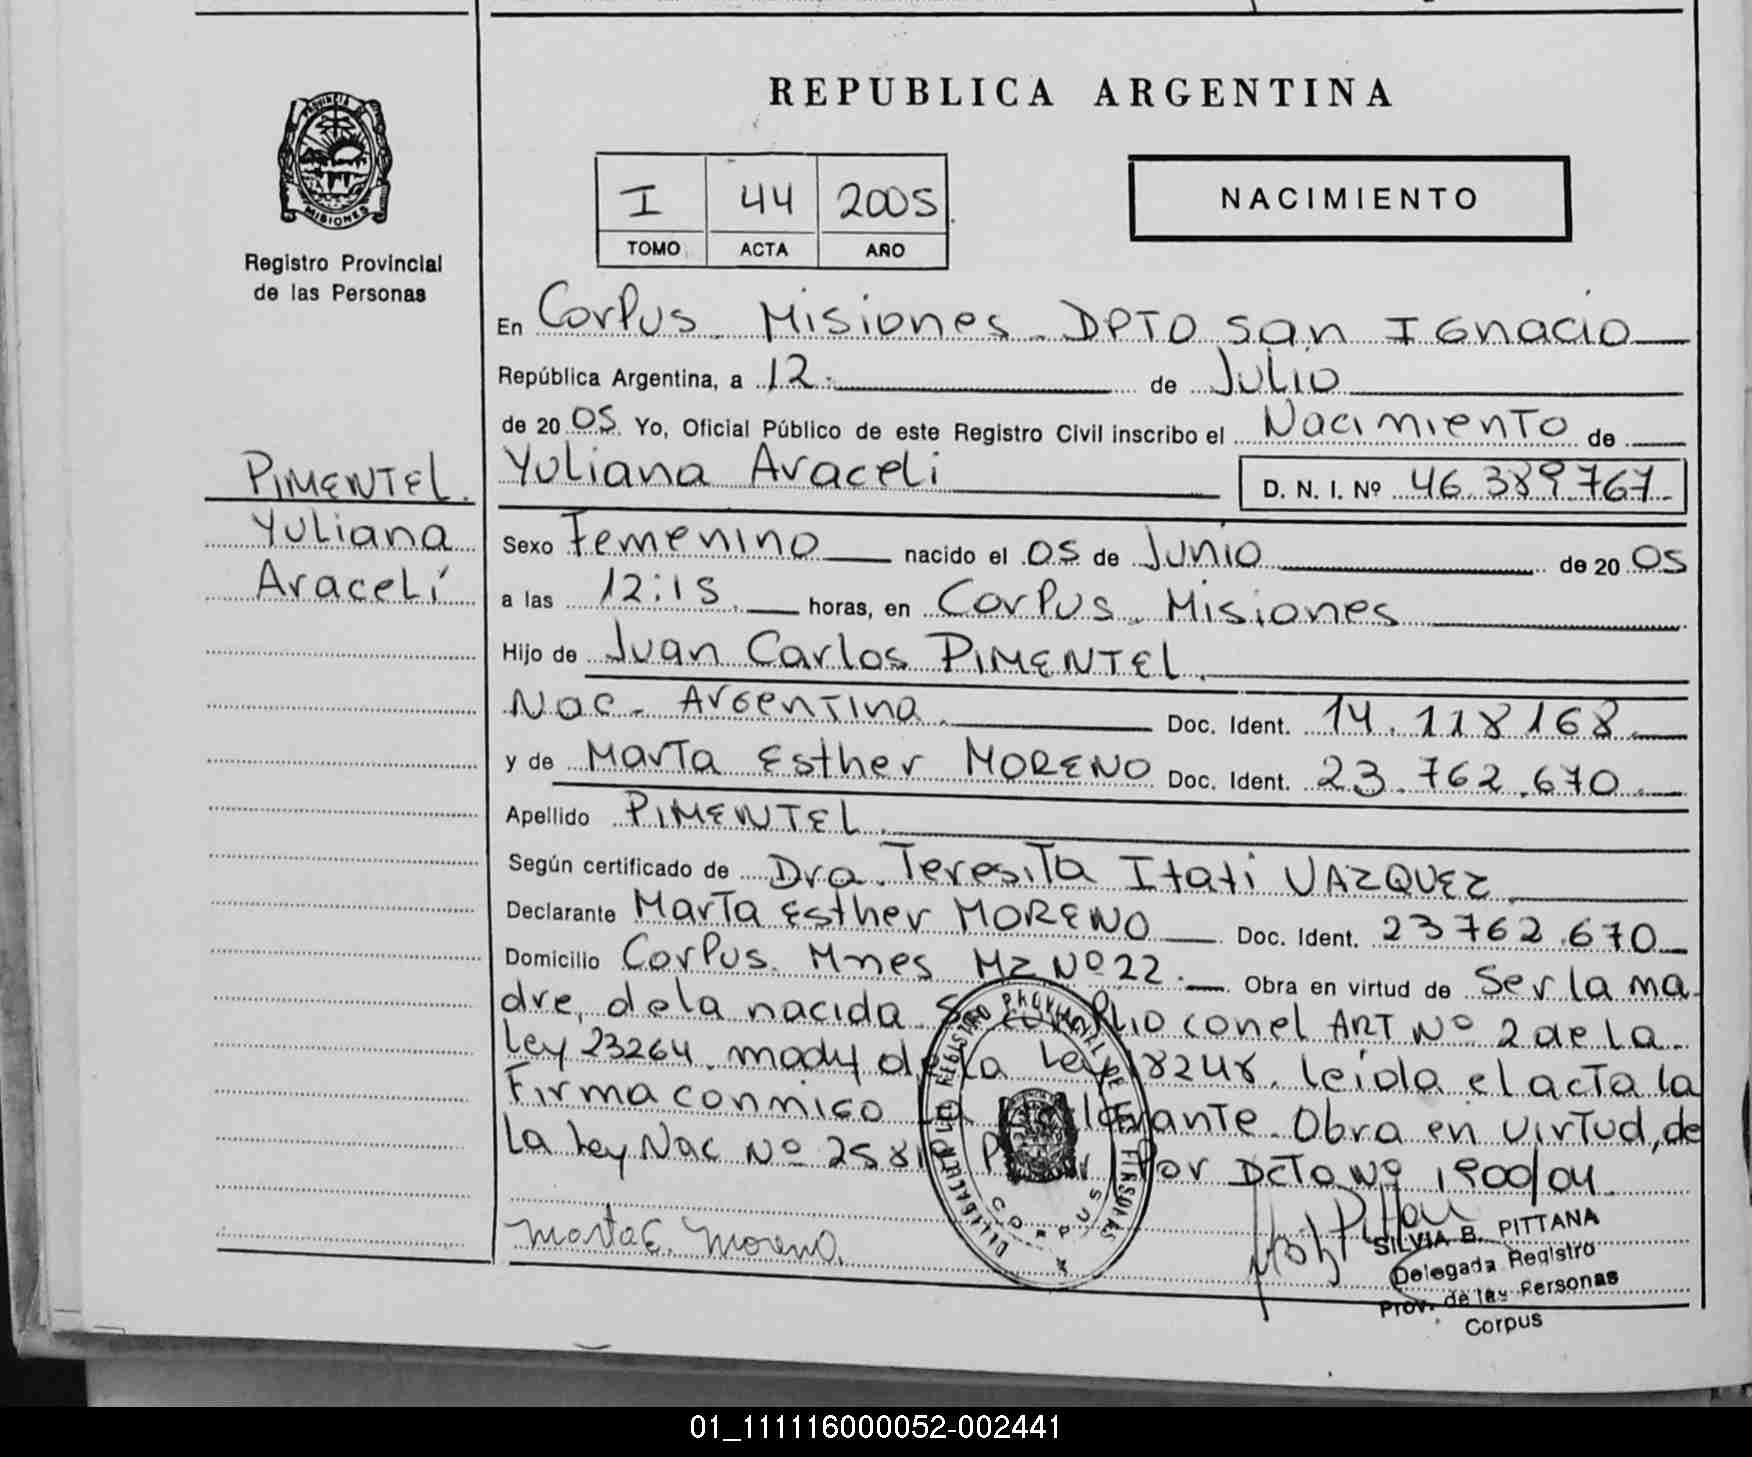 REPUBLICA ARGENTINA
PROVINCIA DE
MISIONES
Registro Provincial
de las Personas
I 44 2005
TOMO ACTA AÑO
NACIMIENTO
En Corpus Misiones DPTO San Ignacio
República Argentina, a 12 de Julio
de 20 05 Yo, Oficial Público de este Registro Civil inscribo el Nacimiento de
PIMENTEL
Yuliana
Araceli
Yuliana Araceli D. N. I. Nº 46.389.767
Sexo Femenino nacido el 05 de Junio de 20 05
a las 12:15 horas, en Corpus Misiones
Hijo de Juan Carlos PIMENTEL
Nac. Argentina Doc. Ident. 14.118168
y de Marta Esther MORENO Doc. Ident. 23.762.670
Apellido PIMENTEL
Según certificado de Dra. Teresita Itati VAZQUEZ
Declarante Marta Esther MORENO Doc. Ident. 23762.670
Domicilio Corpus Mnes MZ Nº 22 Obra en virtud de Ser la ma
dre, de la nacida Se cumplio con el ART Nº 2 de la
Ley 23264. modif de la Ley 18248. leida el acta la
Firma conmigo la declarante. Obra en virtud, de
la Ley Nac Nº por DCTO Nº 1900/04
Marta E. Moreno.
REGISTRO PROVINCIAL DE LAS PERSONAS
CORPUS
SILVIA B. PITTANA
Delegada Registro
Prov. de las Personas
Corpus
01_111116000052-002441